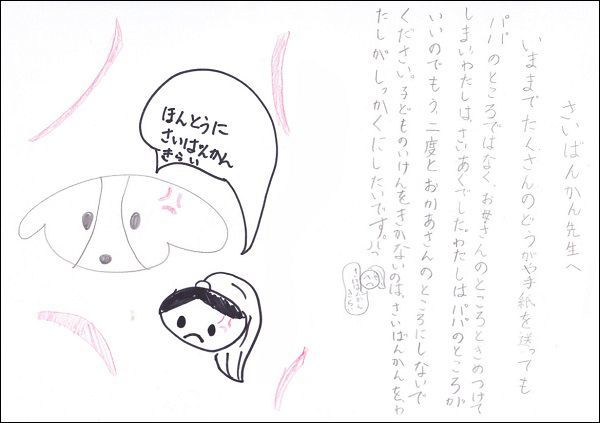 さいばんかん先生へ
いままでたくさんのどうがや手紙を送っても
パパのところではなく、お母さんのところときめつけて
しまいわたしは、さいあくでした。わたしはパパのところが
いいのでもう、二度とおかあさんのところにしないで
ください。子どものいけんをきかないのは、さいばんかんを、わ
たしがしっかくにしたいです!!
ほんとうに
さいばんかん
きらい
さいばんかん